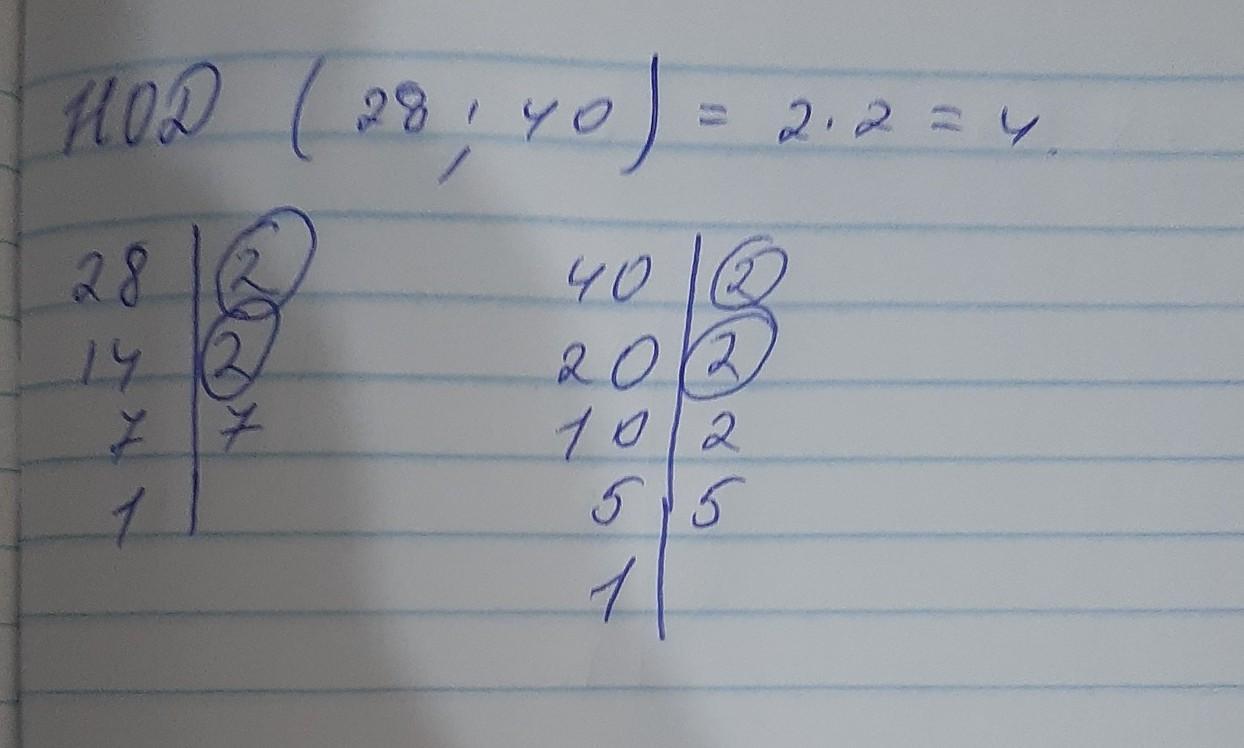 НОД (28; 40) = 2·2 = 4.
28 | 2 40 | 2
14 | 2 20 | 2
7 | 7 10 | 2
1 | 5 | 5
1 |